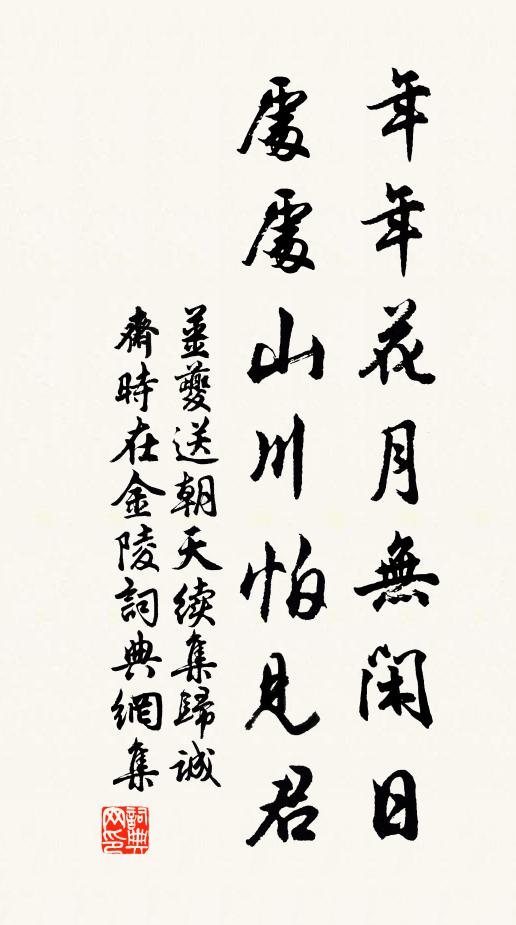 年年花月無閑日
處處山川怕見君
姜夔送朝天续集歸誠
齋時在金陵詞典網集
詞典网印